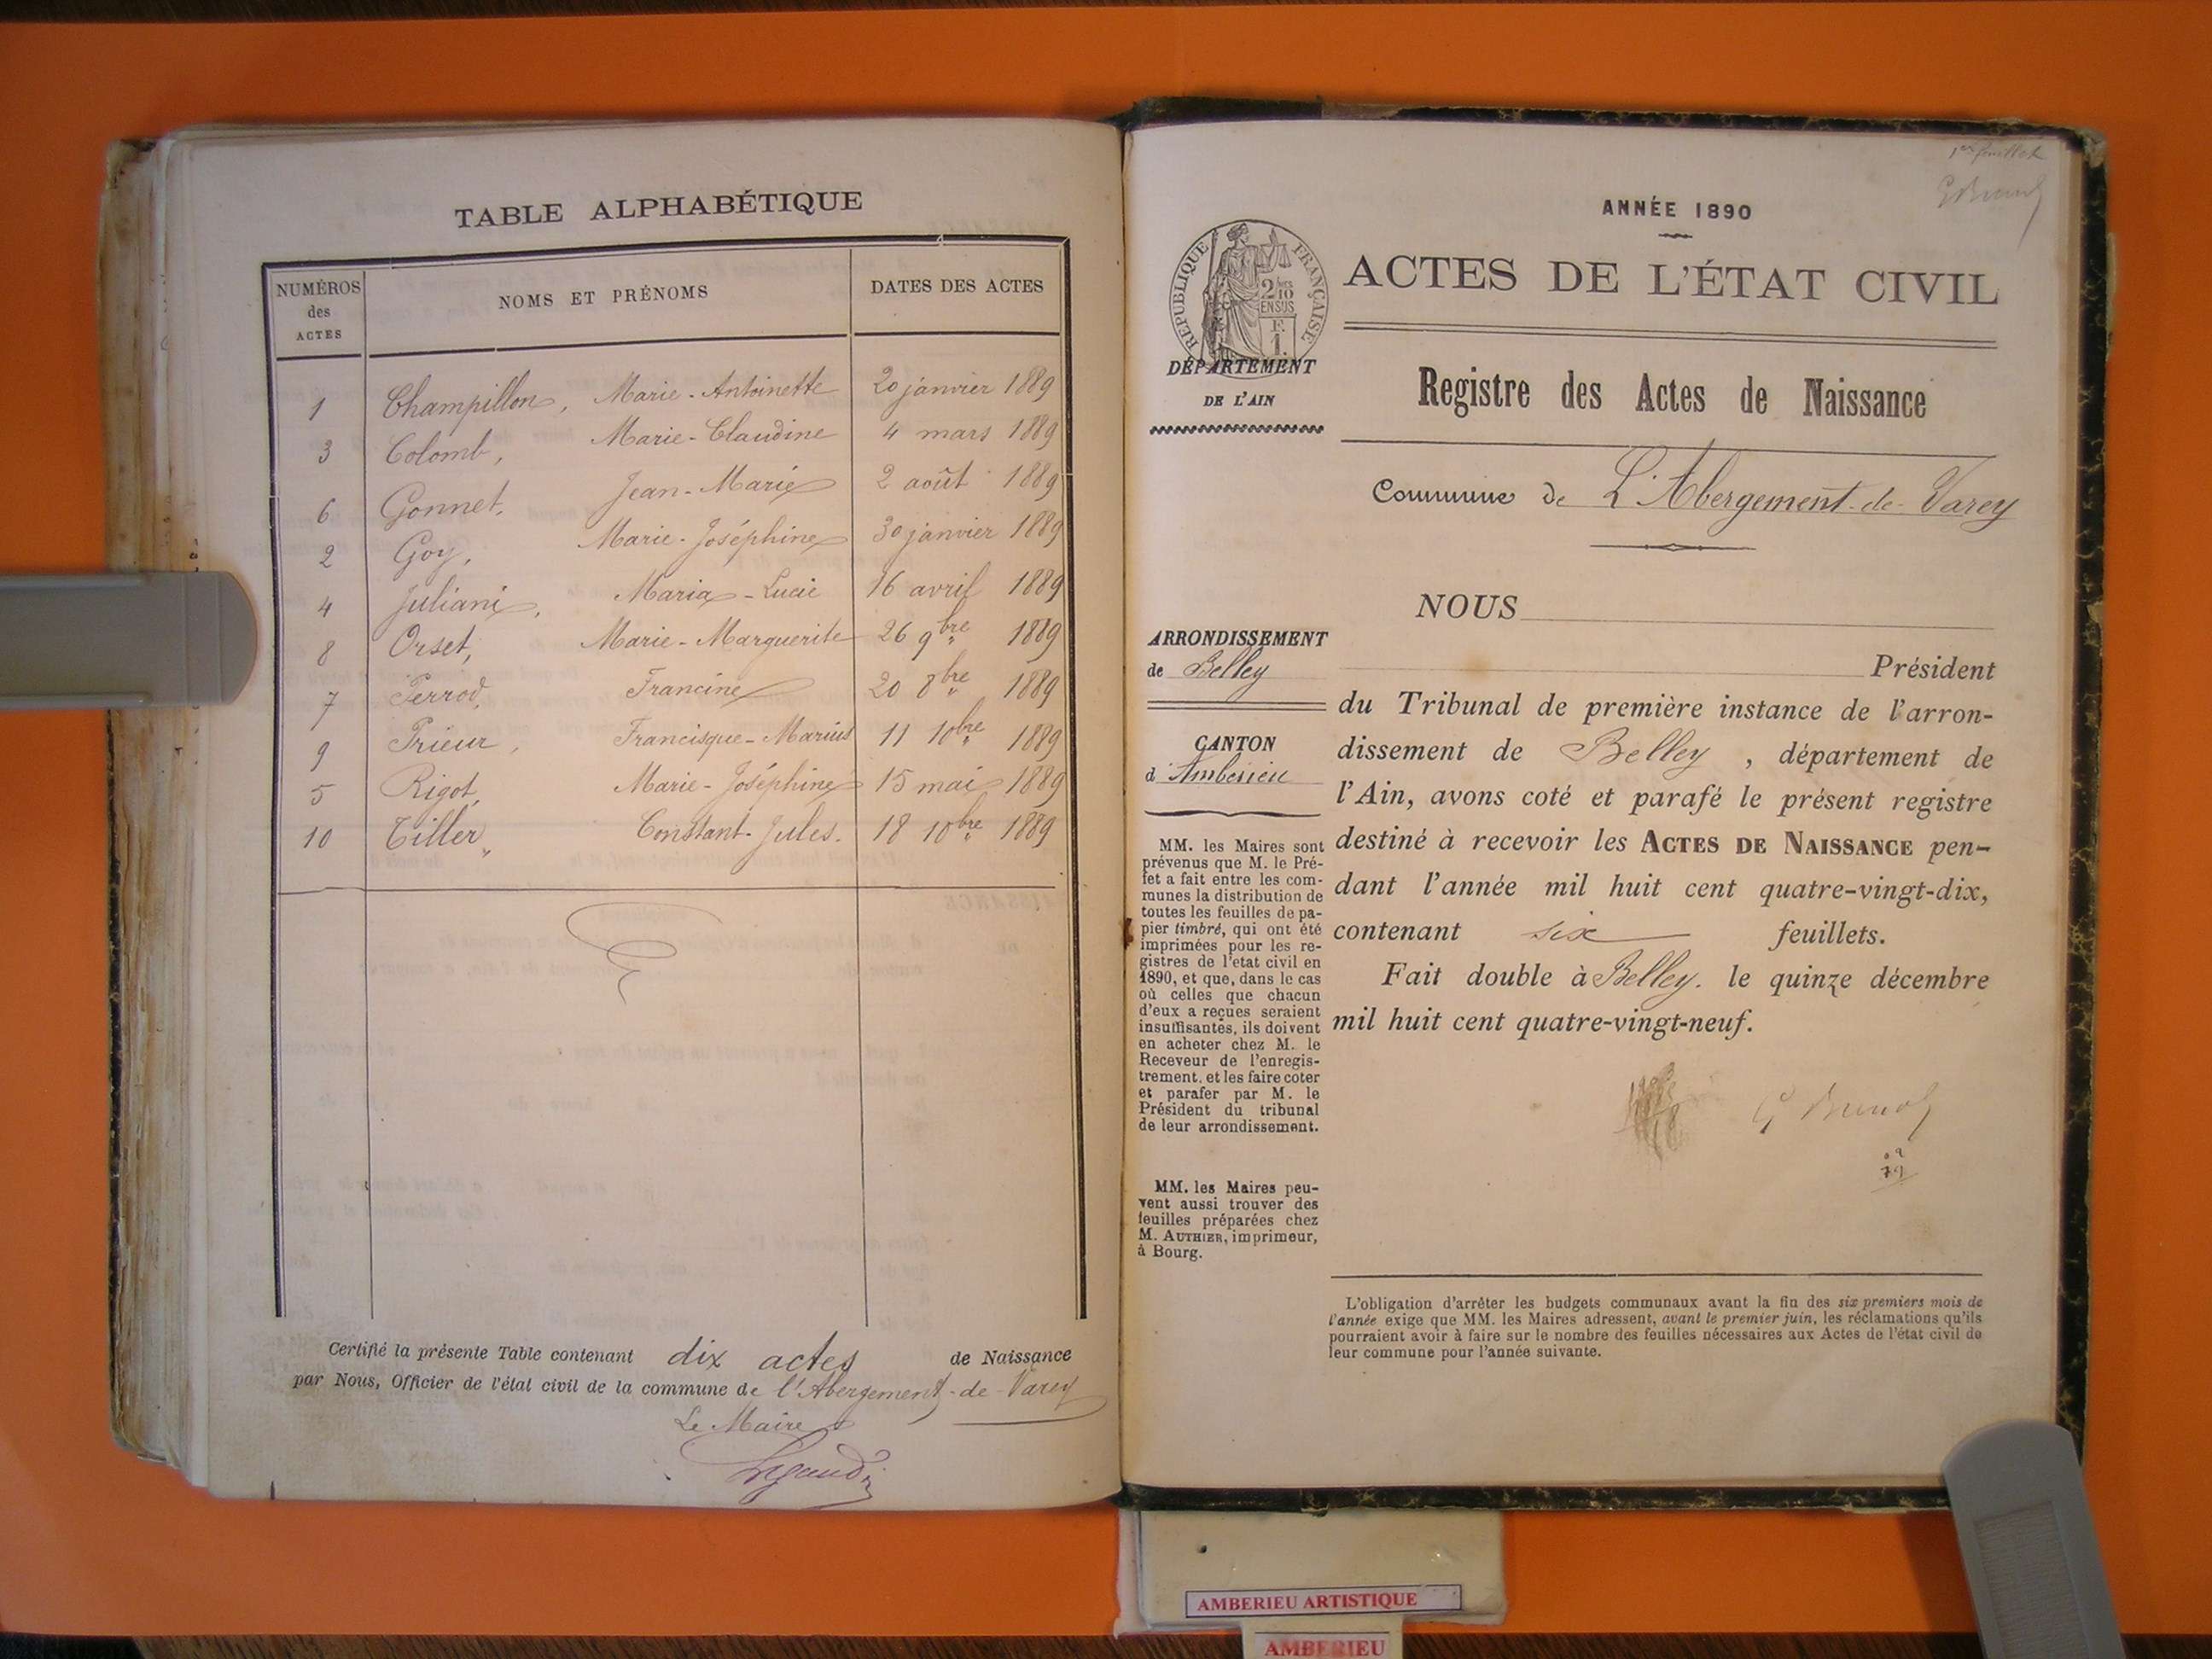 TABLE ALPHABÉTIQUE
NUMÉROS des ACTES
NOMS ET PRÉNOMS
DATES DES ACTES
1 Champillon, Marie-Antoinette 20 janvier 1889
3 Colomb, Marie-Claudine 4 mars 1889
6 Gonnet, Jean-Marie 2 août 1889
2 Goy, Marie-Joséphine 30 janvier 1889
4 Juliani, Maria-Lucie 16 avril 1889
8 Orset, Marie-Marguerite 26 9bre 1889
7 Perrod, Francine 20 8bre 1889
9 Prieur, Francisque-Marius 11 10bre 1889
5 Rigot, Marie-Joséphine 15 mai 1889
10 Tiller, Constant-Jules. 18 10bre 1889
Certifié la présente Table contenant dix actes de Naissance
par Nous, Officier de l'état civil de la commune de l'Abergement-de-Varey
Le Maire
1er feuillet
ANNÉE 1890
RÉPUBLIQUE FRANÇAISE
2/10 EN SUS
F. 1.
ACTES DE L'ÉTAT CIVIL
DÉPARTEMENT
DE L'AIN
Registre des Actes de Naissance
Commune de L'Abergement-de-Varey
NOUS
ARRONDISSEMENT
de Belley
Président
du Tribunal de première instance de l'arron-
dissement de Belley, département de
l'Ain, avons coté et parafé le présent registre
destiné à recevoir les ACTES DE NAISSANCE pen-
dant l'année mil huit cent quatre-vingt-dix,
contenant six feuillets.
Fait double à Belley. le quinze décembre
mil huit cent quatre-vingt-neuf.
CANTON
d'Ambérieu
MM. les Maires sont
prévenus que M. le Pré-
fet a fait entre les com-
munes la distribution de
toutes les feuilles de pa-
pier timbré, qui ont été
imprimées pour les re-
gistres de l'état civil en
1890, et que, dans le cas
où celles que chacun
d'eux a reçues seraient
insuffisantes, ils doivent
en acheter chez M. le
Receveur de l'enregis-
trement, et les faire coter
et parafer par M. le
Président du tribunal
de leur arrondissement.
MM. les Maires peu-
vent aussi trouver des
feuilles préparées chez
M. AUTHIER, imprimeur,
à Bourg.
L'obligation d'arrêter les budgets communaux avant la fin des six premiers mois de
l'année exige que MM. les Maires adressent, avant le premier juin, les réclamations qu'ils
pourraient avoir à faire sur le nombre des feuilles nécessaires aux Actes de l'état civil de
leur commune pour l'année suivante.
AMBERIEU ARTISTIQUE
AMBERIEU